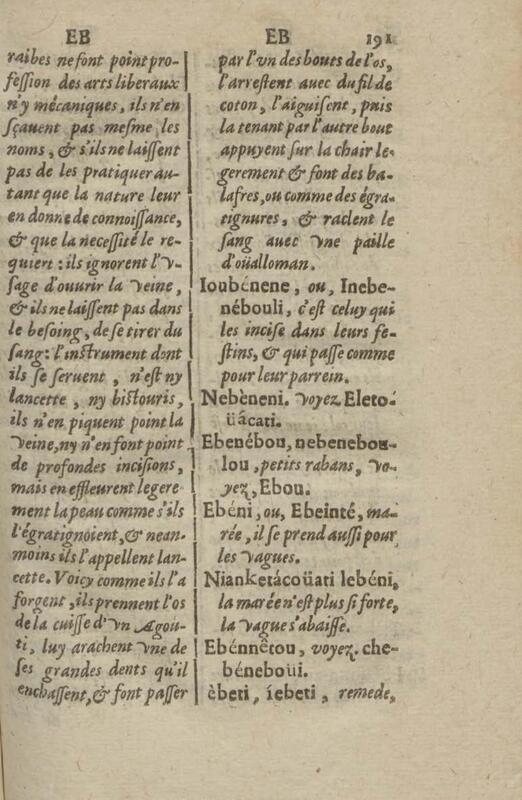 EB
raibes ne font point pro-
fession des arts liberaux
n'y mécaniques, ils n'en
sçauent pas mesme les
noms, & s'ils ne laissent
pas de les pratiquer au-
tant que la nature leur
en donne de connoissance,
& que la necessité le re-
quiert : ils ignorent l'v-
sage d'ouurir la veine,
& ils ne laissent pas dans
le besoing, de se tirer du
sang: l'instrument dont
ils se seruent, n'est ny
lancette, ny bistouris,
ils n'en piquent point la
veine, ny n'en font point
de profondes incisions,
mais en effleurent legere
ment la peau comme s'ils
l'égratignoient, & nean-
moins ils l'appellent lan-
cette. Voicy comme ils l'a
forgent, ils prennent l'os
de la cuisse d'vn Agou-
ti, luy arachent vne de
ses grandes dents qu'il
enchassent, & font passer
EB 191
par l'vn des bouts de l'os,
l'arrestent auec du fil de
coton, l'aiguisent, puis
la tenant par l'autre bout
appuyent sur la chair le-
gerement & font des ba-
lafres, ou comme des égra-
tignures, & raclent le
sang auec vne paille
d'oüalloman.
Ioubénene, ou, Inebe-
nébouli, c'est celuy qui
les incise dans leurs fe-
stins, & qui passe comme
pour leur parrein.
Nebèneni. voyez Eleto-
üácati.
Ebenébou, nebenebou-
lou, petits rabans, vo-
yez, Ebou.
Ebéni, ou, Ebeinté, ma-
rée, il se prend aussi pour
les vagues.
Nianketácoüati lebéni,
la marée n'est plus si forte,
la vague s'abaisse.
Ebénnêtou, voyez. che-
béneboüi.
èbeti, íebeti, remede,